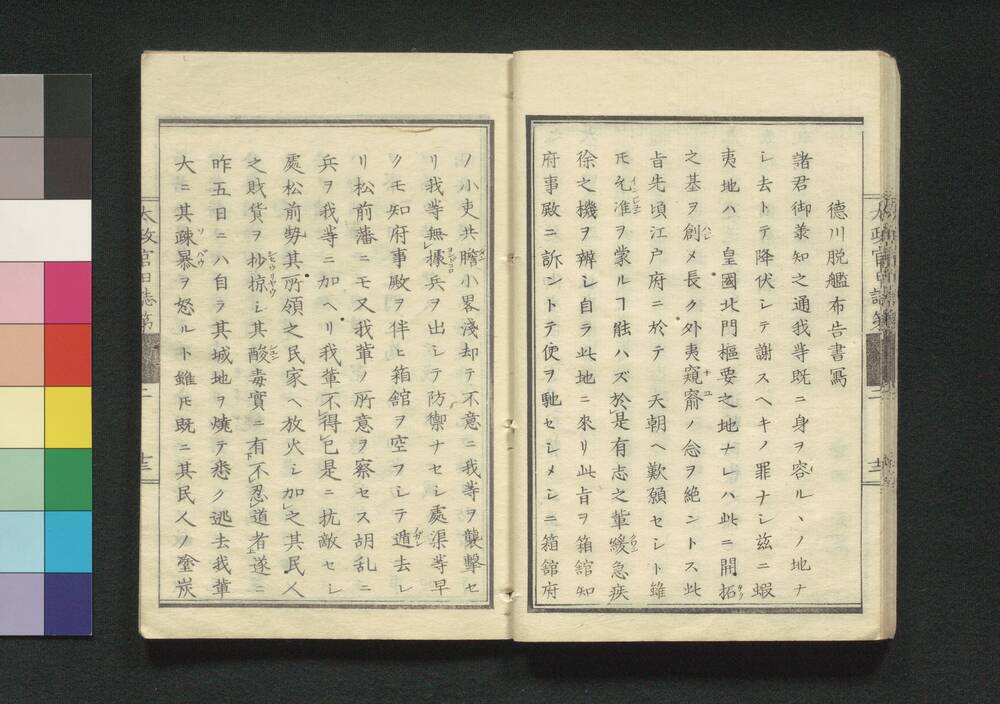 德川脱艦布告書寫
諸君御兼知之通我等既ニ身ヲ容ルヽノ地ナ
シ去トテ降伏シテ謝スヘキノ罪ナシ茲ニ蝦
夷地ハ 皇國北門樞要之地ナレハ此ニ開拓
之基ヲ創メ長ク外夷窺窬ノ念ヲ絶ントス此
旨先頃江戸府ニ於テ 天朝ヘ歎願セシト雖
𪜈允准ヲ蒙ルヿ能ハズ於是有志之輩緩急疾
徐之機ヲ辨シ自ラ此地ニ來リ此旨ヲ箱館知
府事殿ニ訴ントテ使ヲ馳セシメシニ箱館府
ノ小吏共膽小畧淺却テ不意ニ我等ヲ襲擊セ
リ我等無據兵ヲ出シテ防禦ナセシ處渠等早
クモ知府事殿ヲ伴ヒ箱館ヲ空フシテ遁去レ
リ松前藩ニモ又我輩ノ所意ヲ察セス胡乱ニ
兵ヲ我等ニ加ヘリ我輩不得已是ニ抗敵セシ
處松前勢其所領之民家ヘ放火シ加之其民人
之財貨ヲ抄掠シ其酸毒實ニ有不忍道者遂ニ
昨五日ニハ自ラ其城地ヲ燒テ悉ク逃去我輩
大ニ其疎暴ヲ怒ルト雖𪜈既ニ其民人ノ塗炭
太政官日誌第